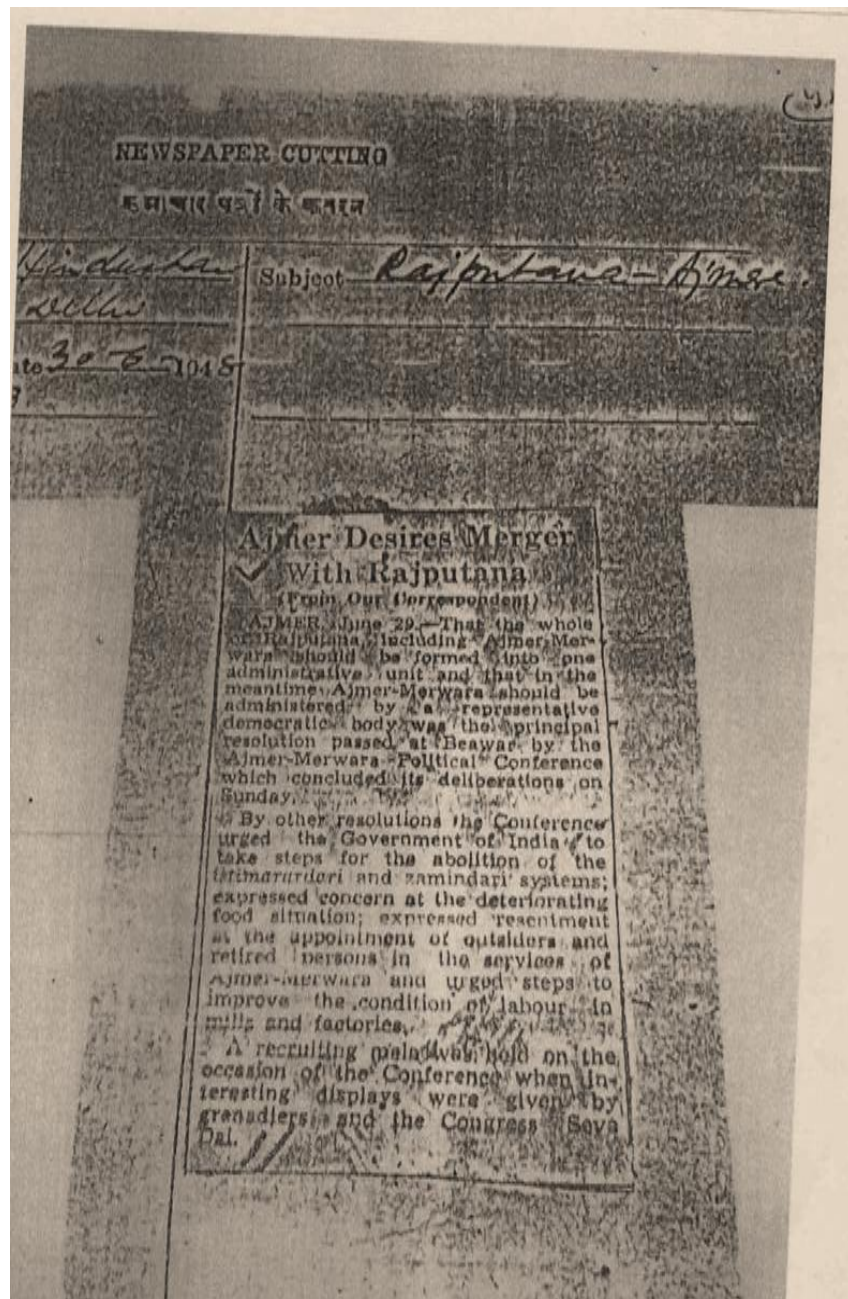 NEWSPAPER CUTTING
समाचार पत्रों के कतरन
Hindusthan
Delhi
Subject Rajputana - Ajmer.
ate 30-6-1948
Ajmer Desires Merger
With Rajputana
(From Our Correspondent)
AJMER, June 29.—That the whole
of Rajputana, including Ajmer-Mer-
wara should be formed into one
administrative unit and that in the
meantime Ajmer-Merwara should be
administered by a representative
democratic body was the principal
resolution passed at Beawar by the
Ajmer-Merwara Political Conference
which concluded its deliberations on
Sunday.
By other resolutions the Conference
urged the Government of India to
take steps for the abolition of the
istimarardari and zamindari systems;
expressed concern at the deteriorating
food situation; expressed resentment
at the appointment of outsiders and
retired persons in the services of
Ajmer-Merwara and urged steps to
improve the condition of labour in
mills and factories.
A recruiting mela was held on the
occasion of the Conference when in-
teresting displays were given by
grenadiers and the Congress Seva
Dal.